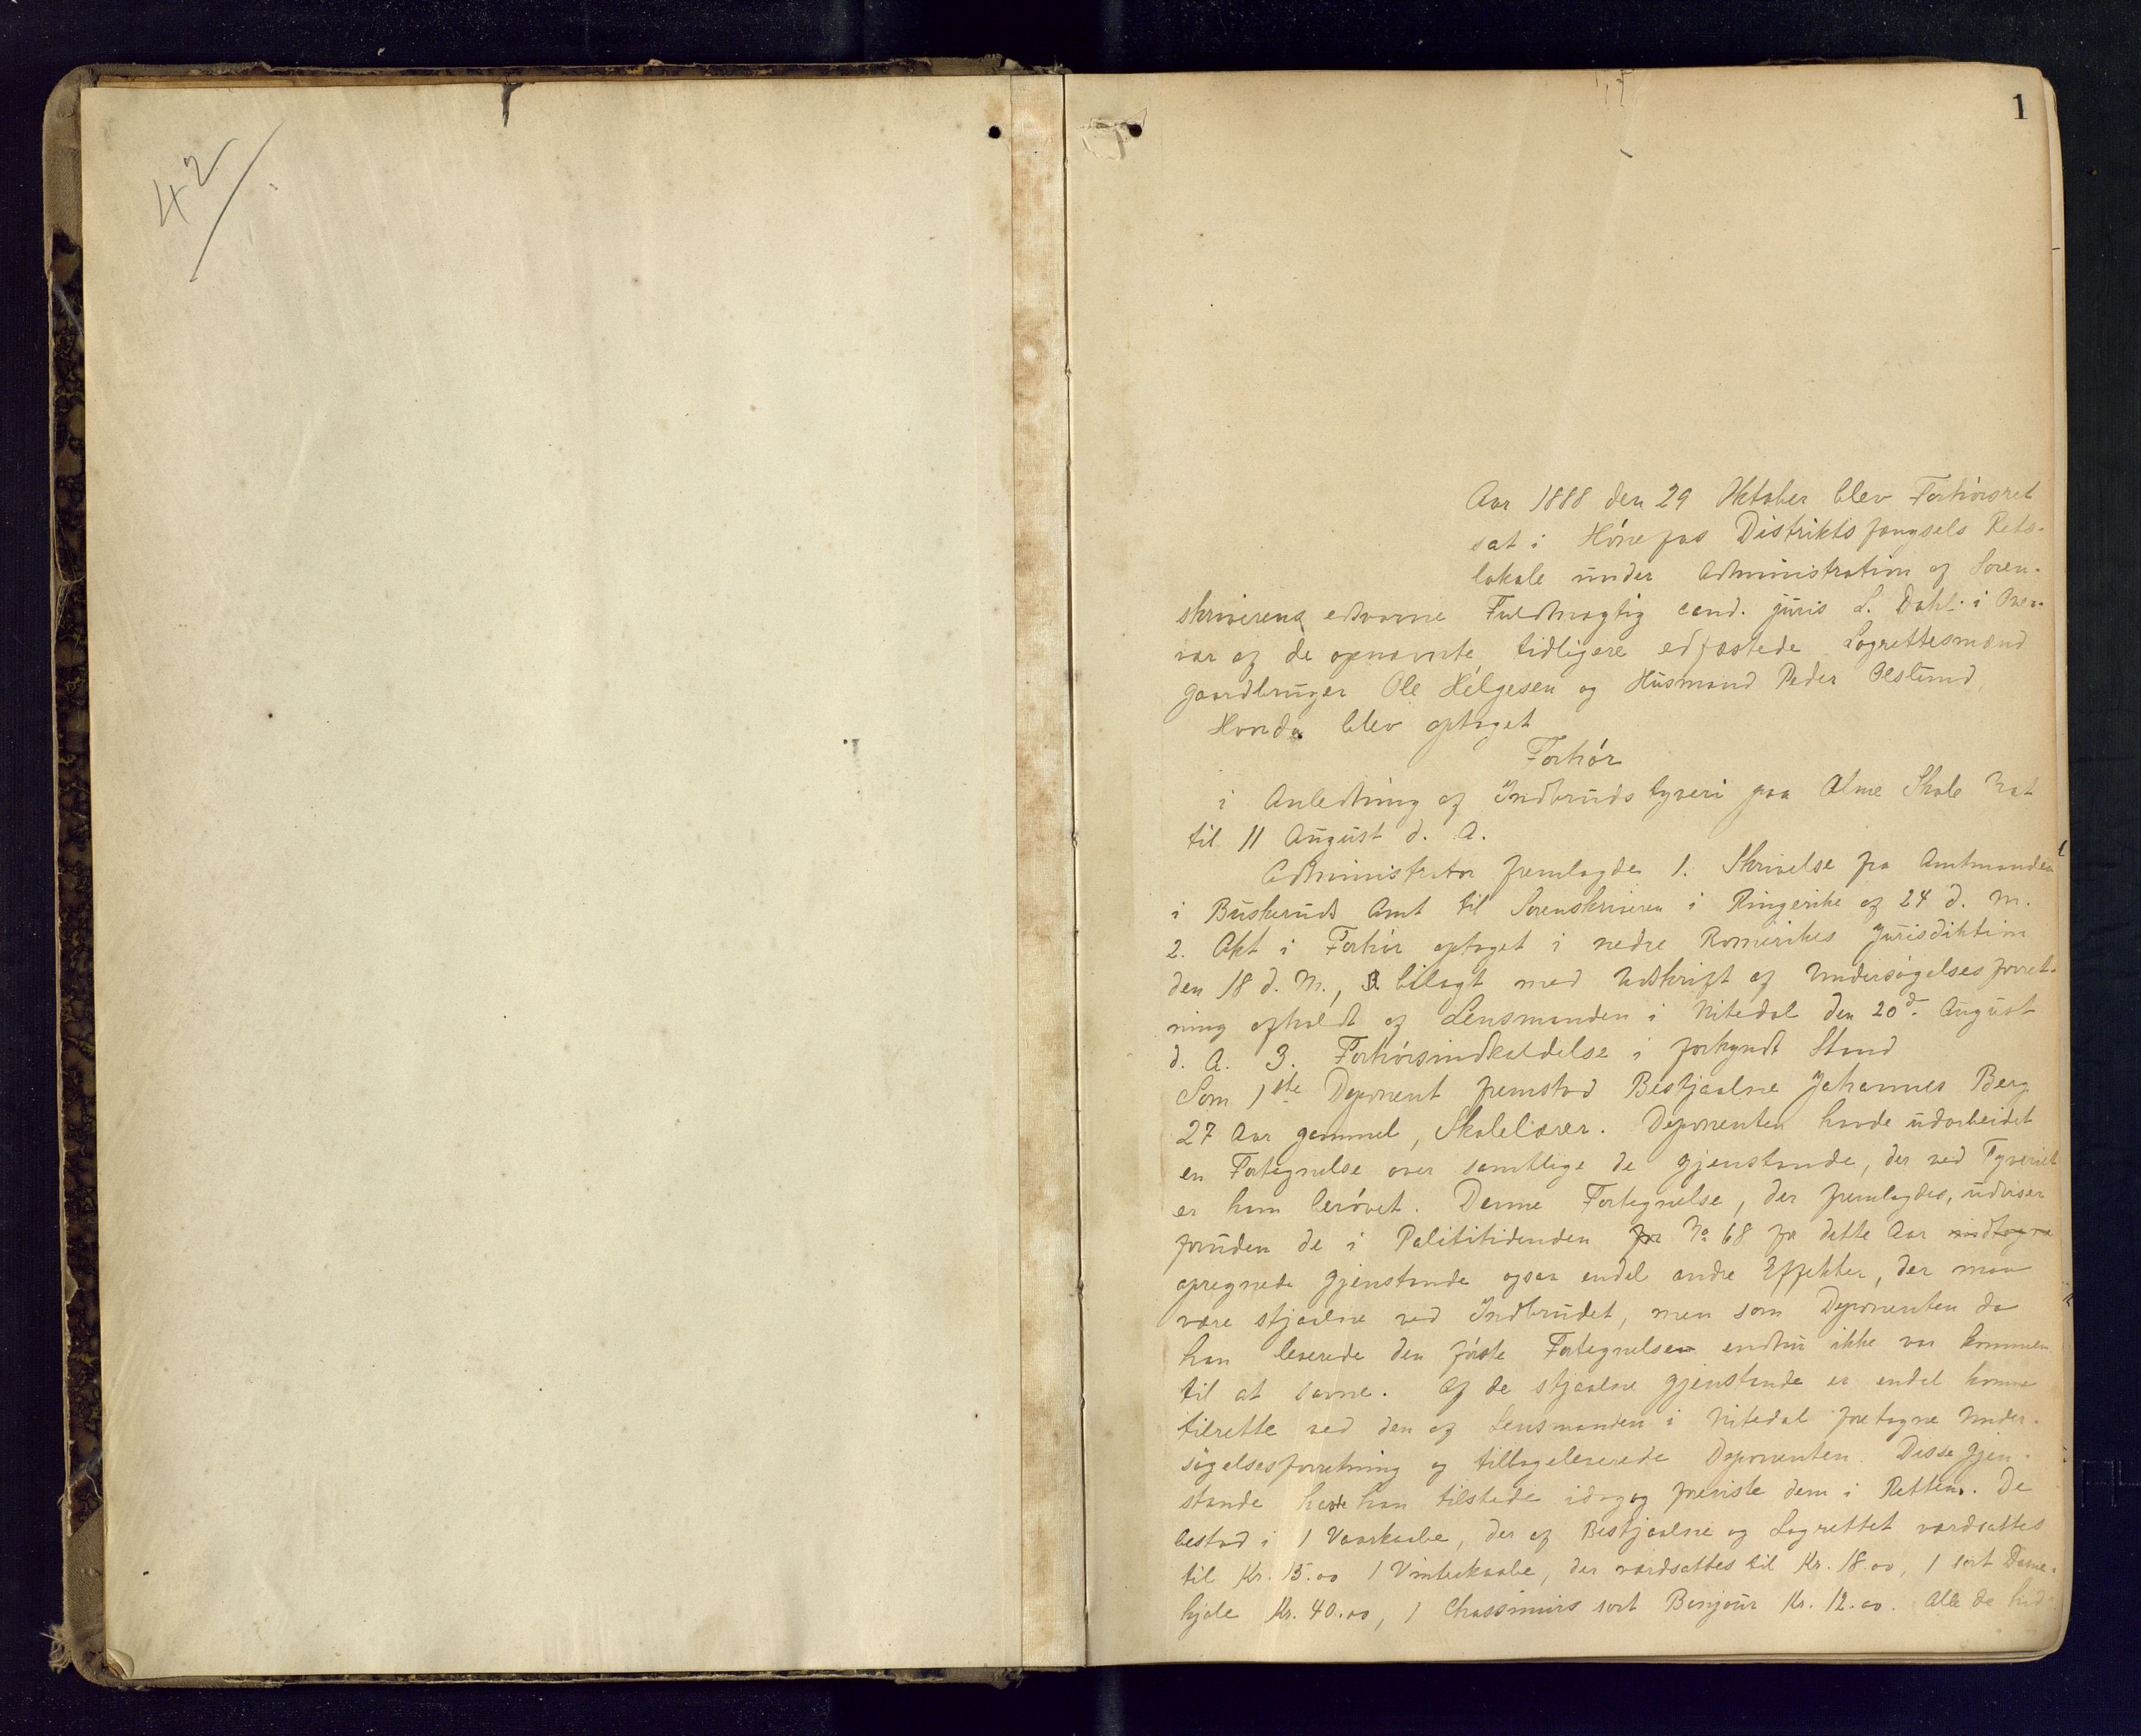 42
1
Aar 1888 den 29 Oktober blev Forhörsret
sat i Hönefos Distriktsfængsels Rets-
lokale under Administration af Soren-
skriverens edsvorne Fuldmægtig cand. juris L. Dahl i Over-
vær af de opnævnte, tidligere edfæstede Lagrettesmænd
Gaardbruger Ole Helgesen og Husmand Peder Oslund,
Hvorda blev optaget
Forhör
i Anledning af Indbrudstyveri paa Alme Skole Nat
til 11 August d. A.
Administrator fremlagde 1. Skrivelse fra Amtmanden
i Buskeruds Amt til Sorenskriveren i Ringerike af 24 d. M.
2. Akt i Forhör optaget i nedre Romerikes Jurisdiktion
den 18 d. M., bilagt med Udskrift af Undersögelsesforret-
ning afholdt af Lensmanden i Nitedal den 20d. August
d. A. 3. Forhörsindkaldelse i forkyndt Stand
Som 1ste Deponent fremstod Bestjaalne Johannes Berg
27 Aar gammel, Skolelærer. Deponenten havde udarbeidet
en Fortegnelse over samtlige de Gjenstande, der ved Tyveriet
er ham berövet. Denne Fortegnelse, der fremlagdes, udviser
foruden de i Polititidenden for No 68 for dette Aar indtagne
opregnede Gjenstande ogsaa endel andre Effekter, der maa
være stjaalne ved Indbrudet, men som Deponenten da
han leverede den förste Fortegnelsen endnu ikke var kommen
til at savne. Af de stjaalne Gjenstande er endel komne
tilrette ved den af Lensmanden i Nitedal foretagne Under-
sögelsesforretning og tilbageleverede Deponenten. Disse Gjen-
stande havde han tilstede idag og foreviste dem i Retten. De
bestod i 1 Vaarkaabe, der af Bestjaalne og Lagrettet værdsattes
til Kr. 15.00 1 Vinterkaabe, der værdsattes til Kr. 18.00, 1 sort Dame-
kjole Kr. 40.00, 1 Chassimirs sort Bonjour Kr. 12.00. Alle de hid-